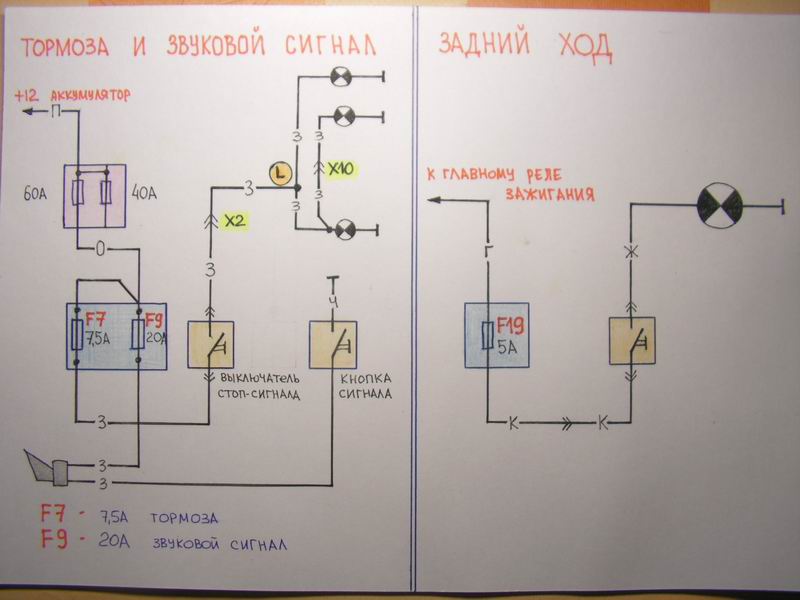 ТОРМОЗА И ЗВУКОВОЙ СИГНАЛ
+12 АККУМУЛЯТОР
П
60А
40А
О
F7
7,5А
F9
20А
З
З
З
З
Х2
З
L
З
З
З
З
Х10
ВЫКЛЮЧАТЕЛЬ
СТОП-СИГНАЛА
Ч
КНОПКА
СИГНАЛА
F7 - 7,5А ТОРМОЗА
F9 - 20А ЗВУКОВОЙ СИГНАЛ
ЗАДНИЙ ХОД
К ГЛАВНОМУ РЕЛЕ
ЗАЖИГАНИЯ
Г
F19
5А
К
К
Ж